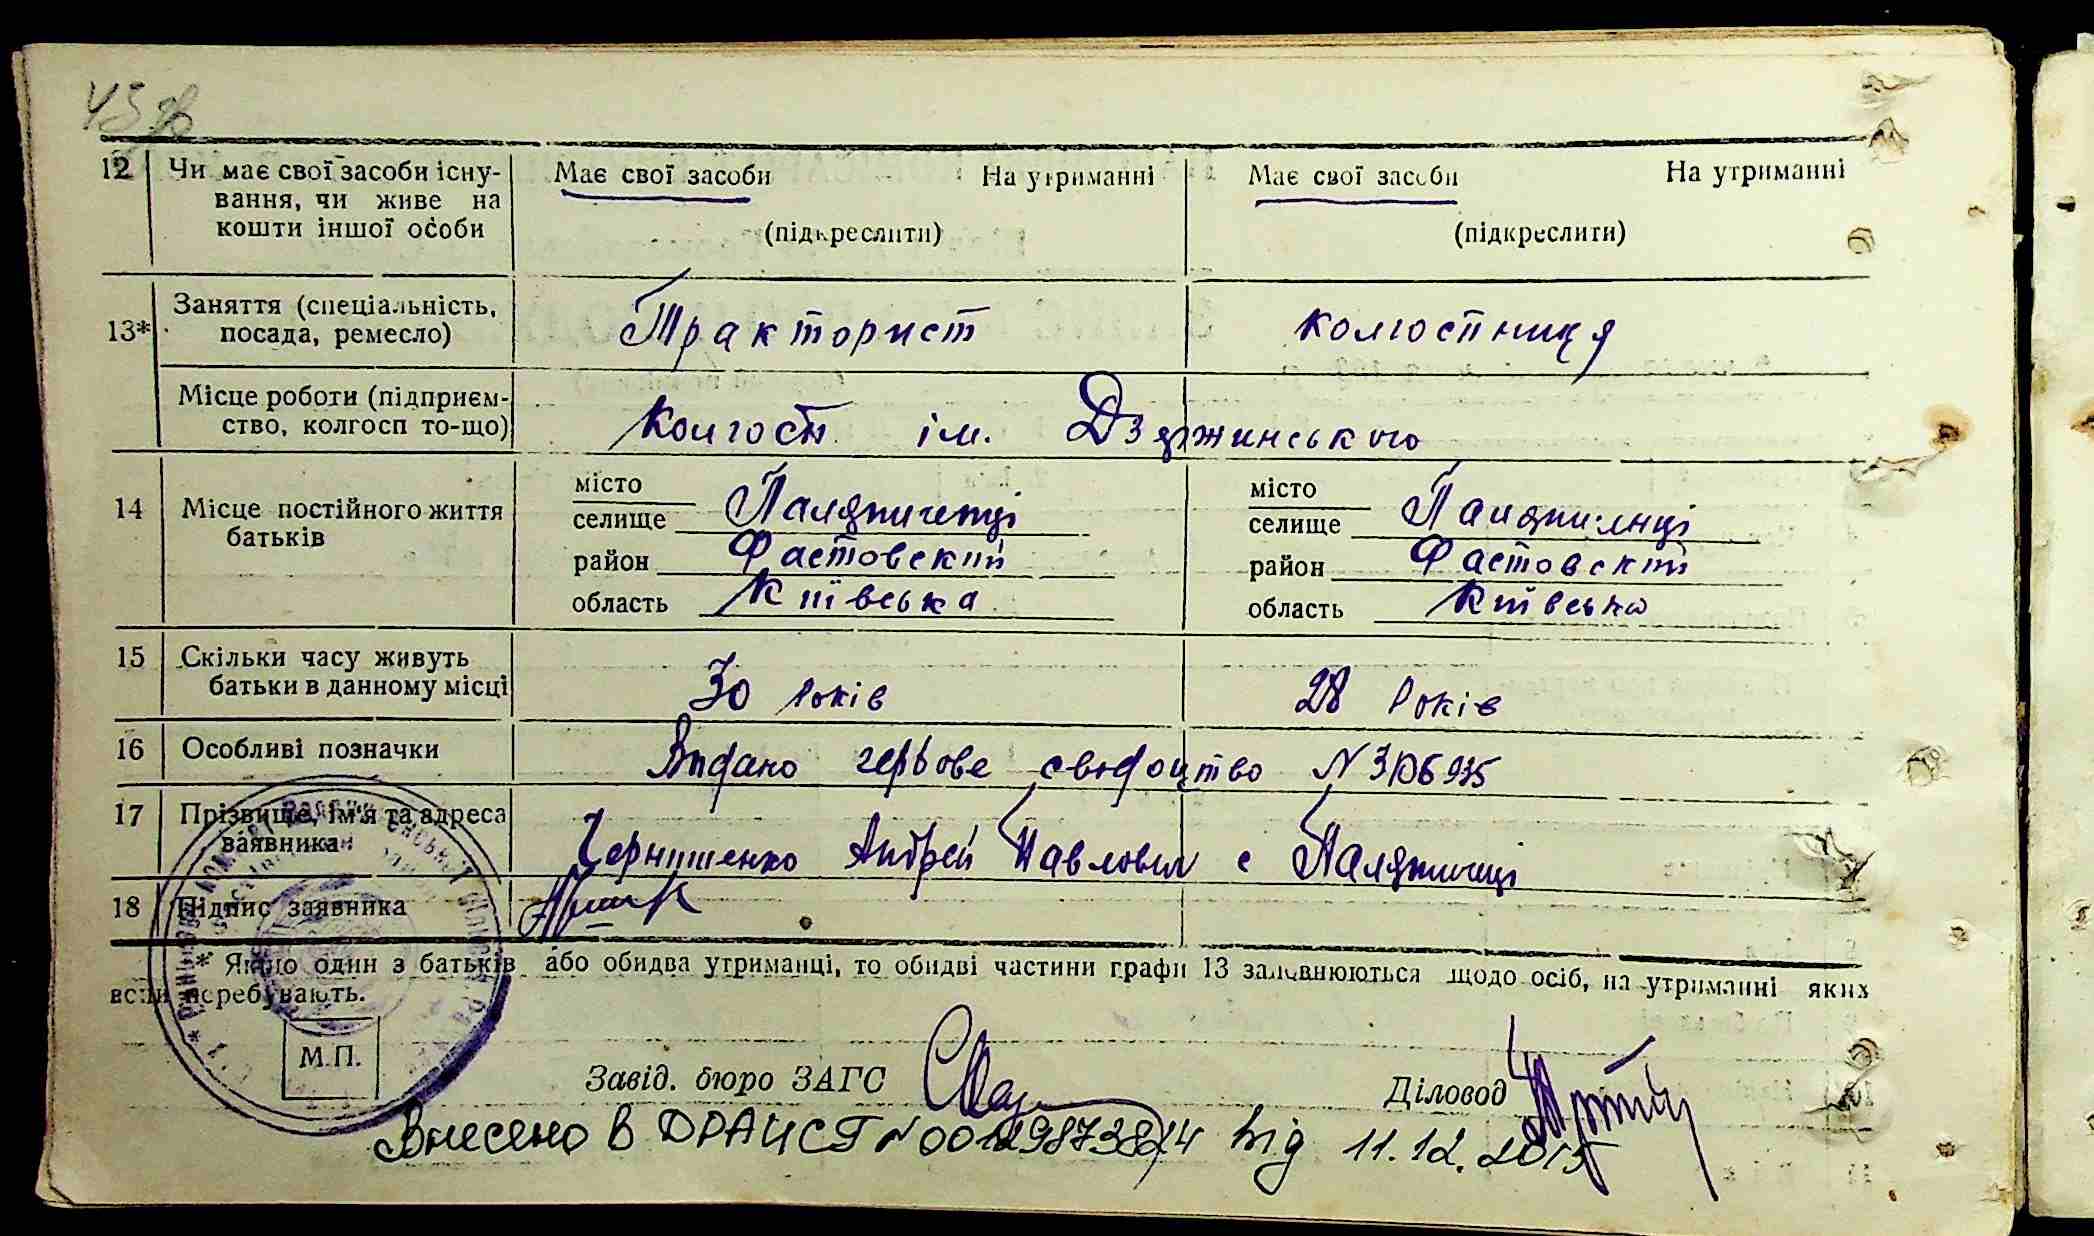 45 зв
12 Чи має свої засоби існу- Має свої засоби На утриманні Має свої засоби На утриманні
вання, чи живе на
кошти іншої особи (підкреслити) (підкреслити)
13* Заняття (спеціальність, посада, ремесло) Тракторист колгоспниця
Місце роботи (підприєм-
ство, колгосп то-що) Колгосп ім. Дзержинського
14 Місце постійного життя батьків
місто місто
селище Паляничинці селище Паляничинці
район Фастовский район Фастовский
область Київська область Київська
15 Скільки часу живуть
батьки в данному місці 30 років 28 Років
16 Особливі позначки Видано свідоцтво N
17 Прізвище, ім'я та адреса
заявника Чернишенко Андрей Павлович с Паляничинці
18 Підпис заявника
* Якщо один з батьків або обидва утриманці, то обидві частини графи 13 заповнюються щодо осіб, на утриманні яких
вони перебувають.
М.П.
Завід. бюро ЗАГС Діловод
Внесено в ДРАЦСГ N від 11.12.2015